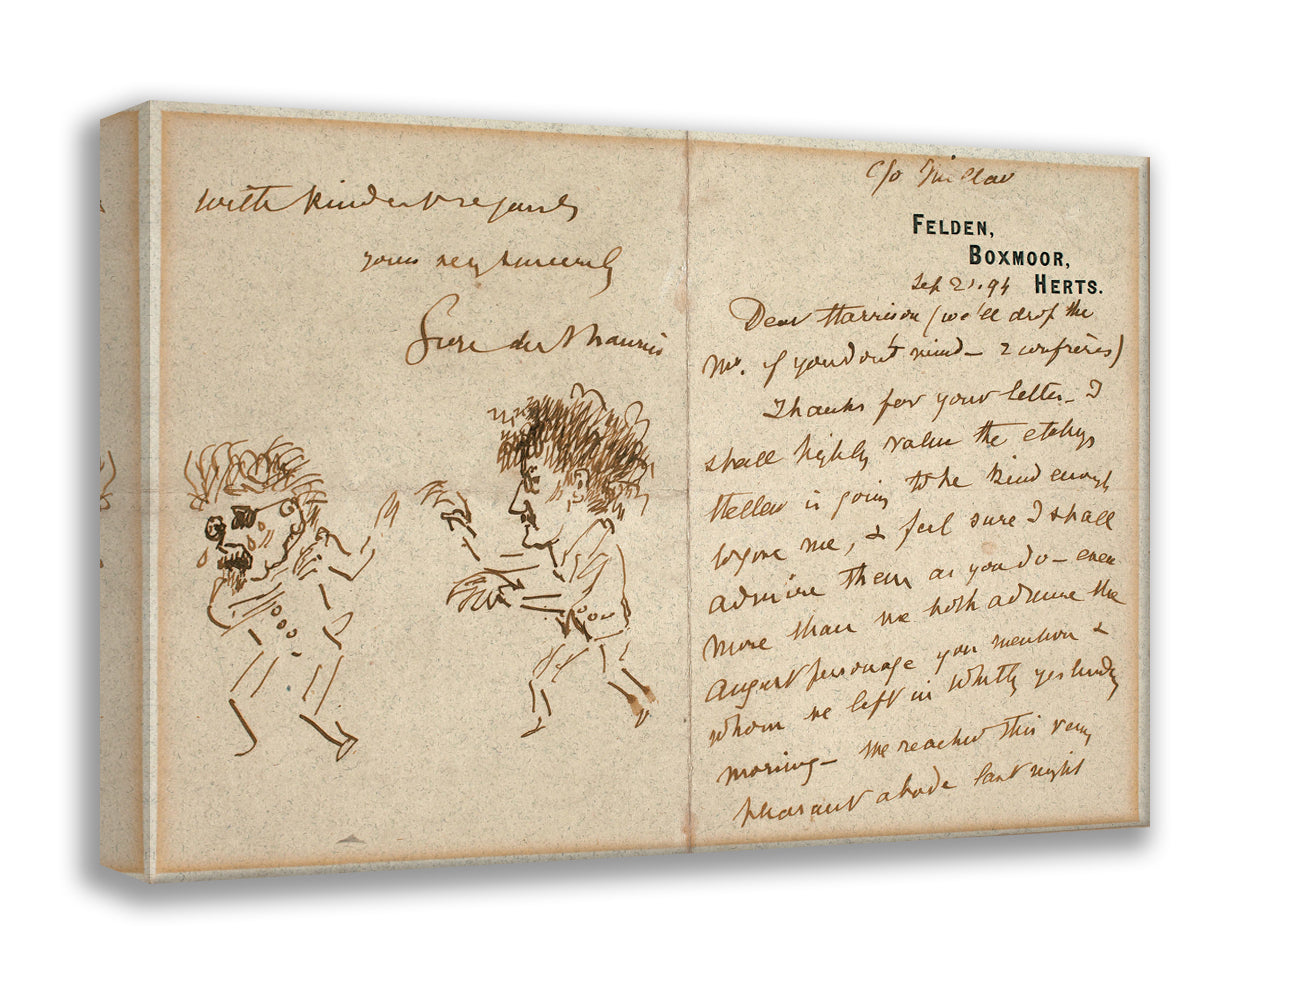 with kindest regards
yours very sincerely
du Maurier
c/o
FELDEN,
BOXMOOR,
HERTS.
Sep 21. 94
Dear Harrison (we'll drop the
Mr. if you don't mind — 2 confrères)
Thanks for your letter — I
shall highly value the etchings
Hellew is going to be kind enough
to give me, & feel sure I shall
admire them as you do — even
more than we both admire the
august personage you mention &
whom we left in Whitby yesterday
morning — We reached this very
pleasant abode last night